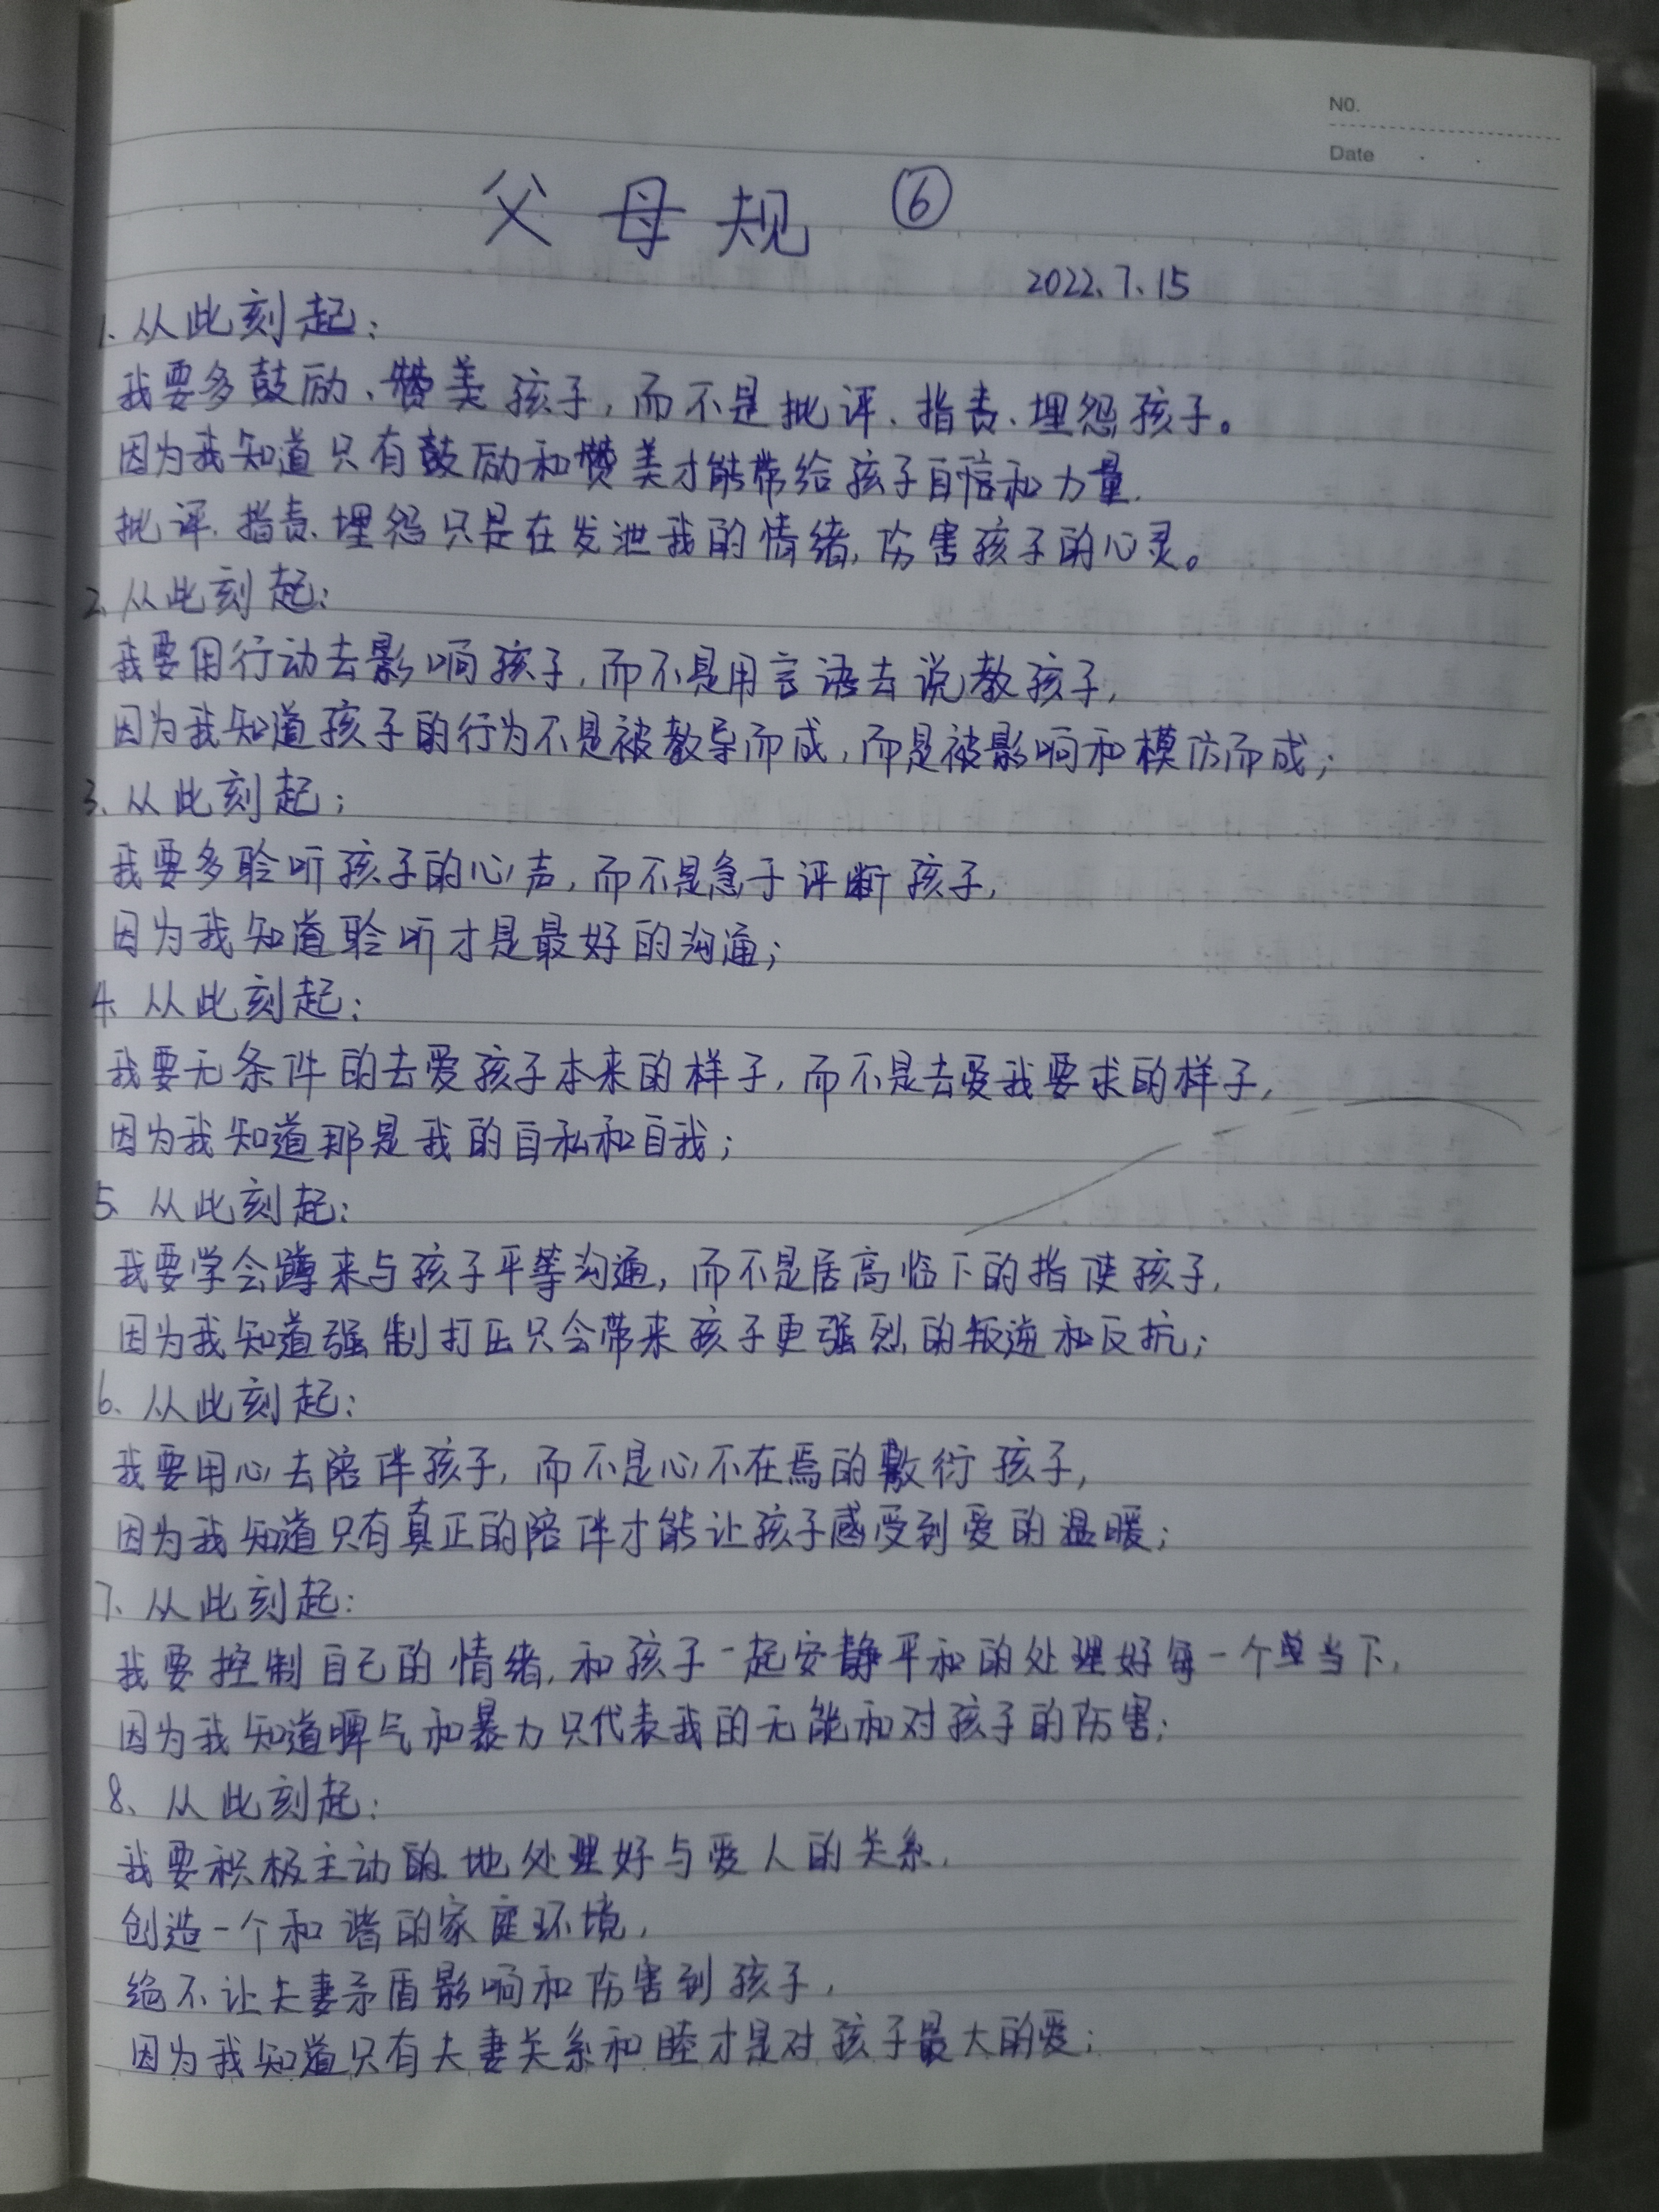 NO.
Date
父母规 ⑥
2022.7.15
1、从此刻起：
我要多鼓励、赞美孩子，而不是批评、指责、埋怨孩子。
因为我知道只有鼓励和赞美才能带给孩子自信和力量.
批评、指责、埋怨只是在发泄我的情绪，伤害孩子的心灵。
2、从此刻起：
我要用行动去影响孩子，而不是用言语去说教孩子，
因为我知道孩子的行为不是被教导而成，而是被影响和模仿而成；
3、从此刻起；
我要多聆听孩子的心声，而不是急于评断孩子，
因为我知道聆听才是最好的沟通；
4、从此刻起：
我要无条件的去爱孩子本来的样子，而不是去爱我要求的样子，
因为我知道那是我的自私和自我；
5、从此刻起：
我要学会蹲来与孩子平等沟通，而不是居高临下的指使孩子，
因为我知道强制打压只会带来孩子更强烈的叛逆和反抗；
6、从此刻起：
我要用心去陪伴孩子，而不是心不在焉的敷衍孩子，
因为我知道只有真正的陪伴才能让孩子感受到爱的温暖；
7、从此刻起：
我要控制自己的情绪，和孩子一起安静平和的处理好每一个当下，
因为我知道脾气和暴力只代表我的无能和对孩子的伤害；
8、从此刻起：
我要积极主动的地处理好与爱人的关系，
创造一个和谐的家庭环境，
绝不让夫妻矛盾影响和伤害到孩子，
因为我知道只有夫妻关系和睦才是对孩子最大的爱；